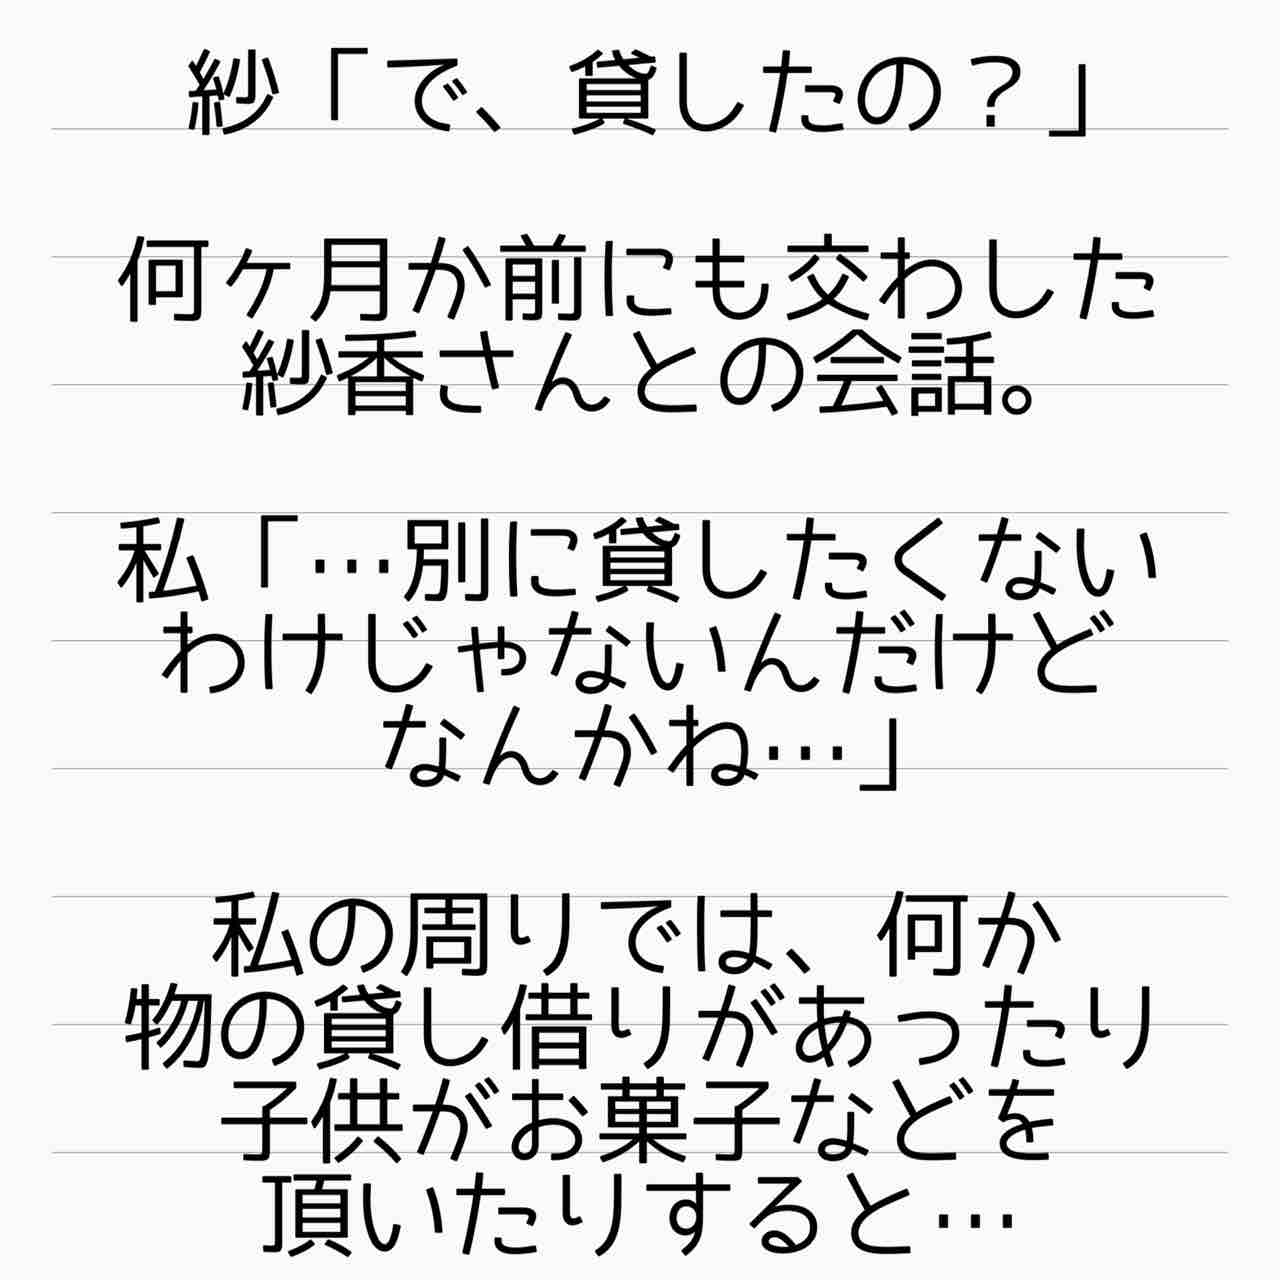 紗「で、貸したの？」
何ヶ月か前にも交わした
紗香さんとの会話。
私「…別に貸したくない
わけじゃないんだけど
なんかね…」
私の周りでは、何か
物の貸し借りがあったり
子供がお菓子などを
頂いたりすると…